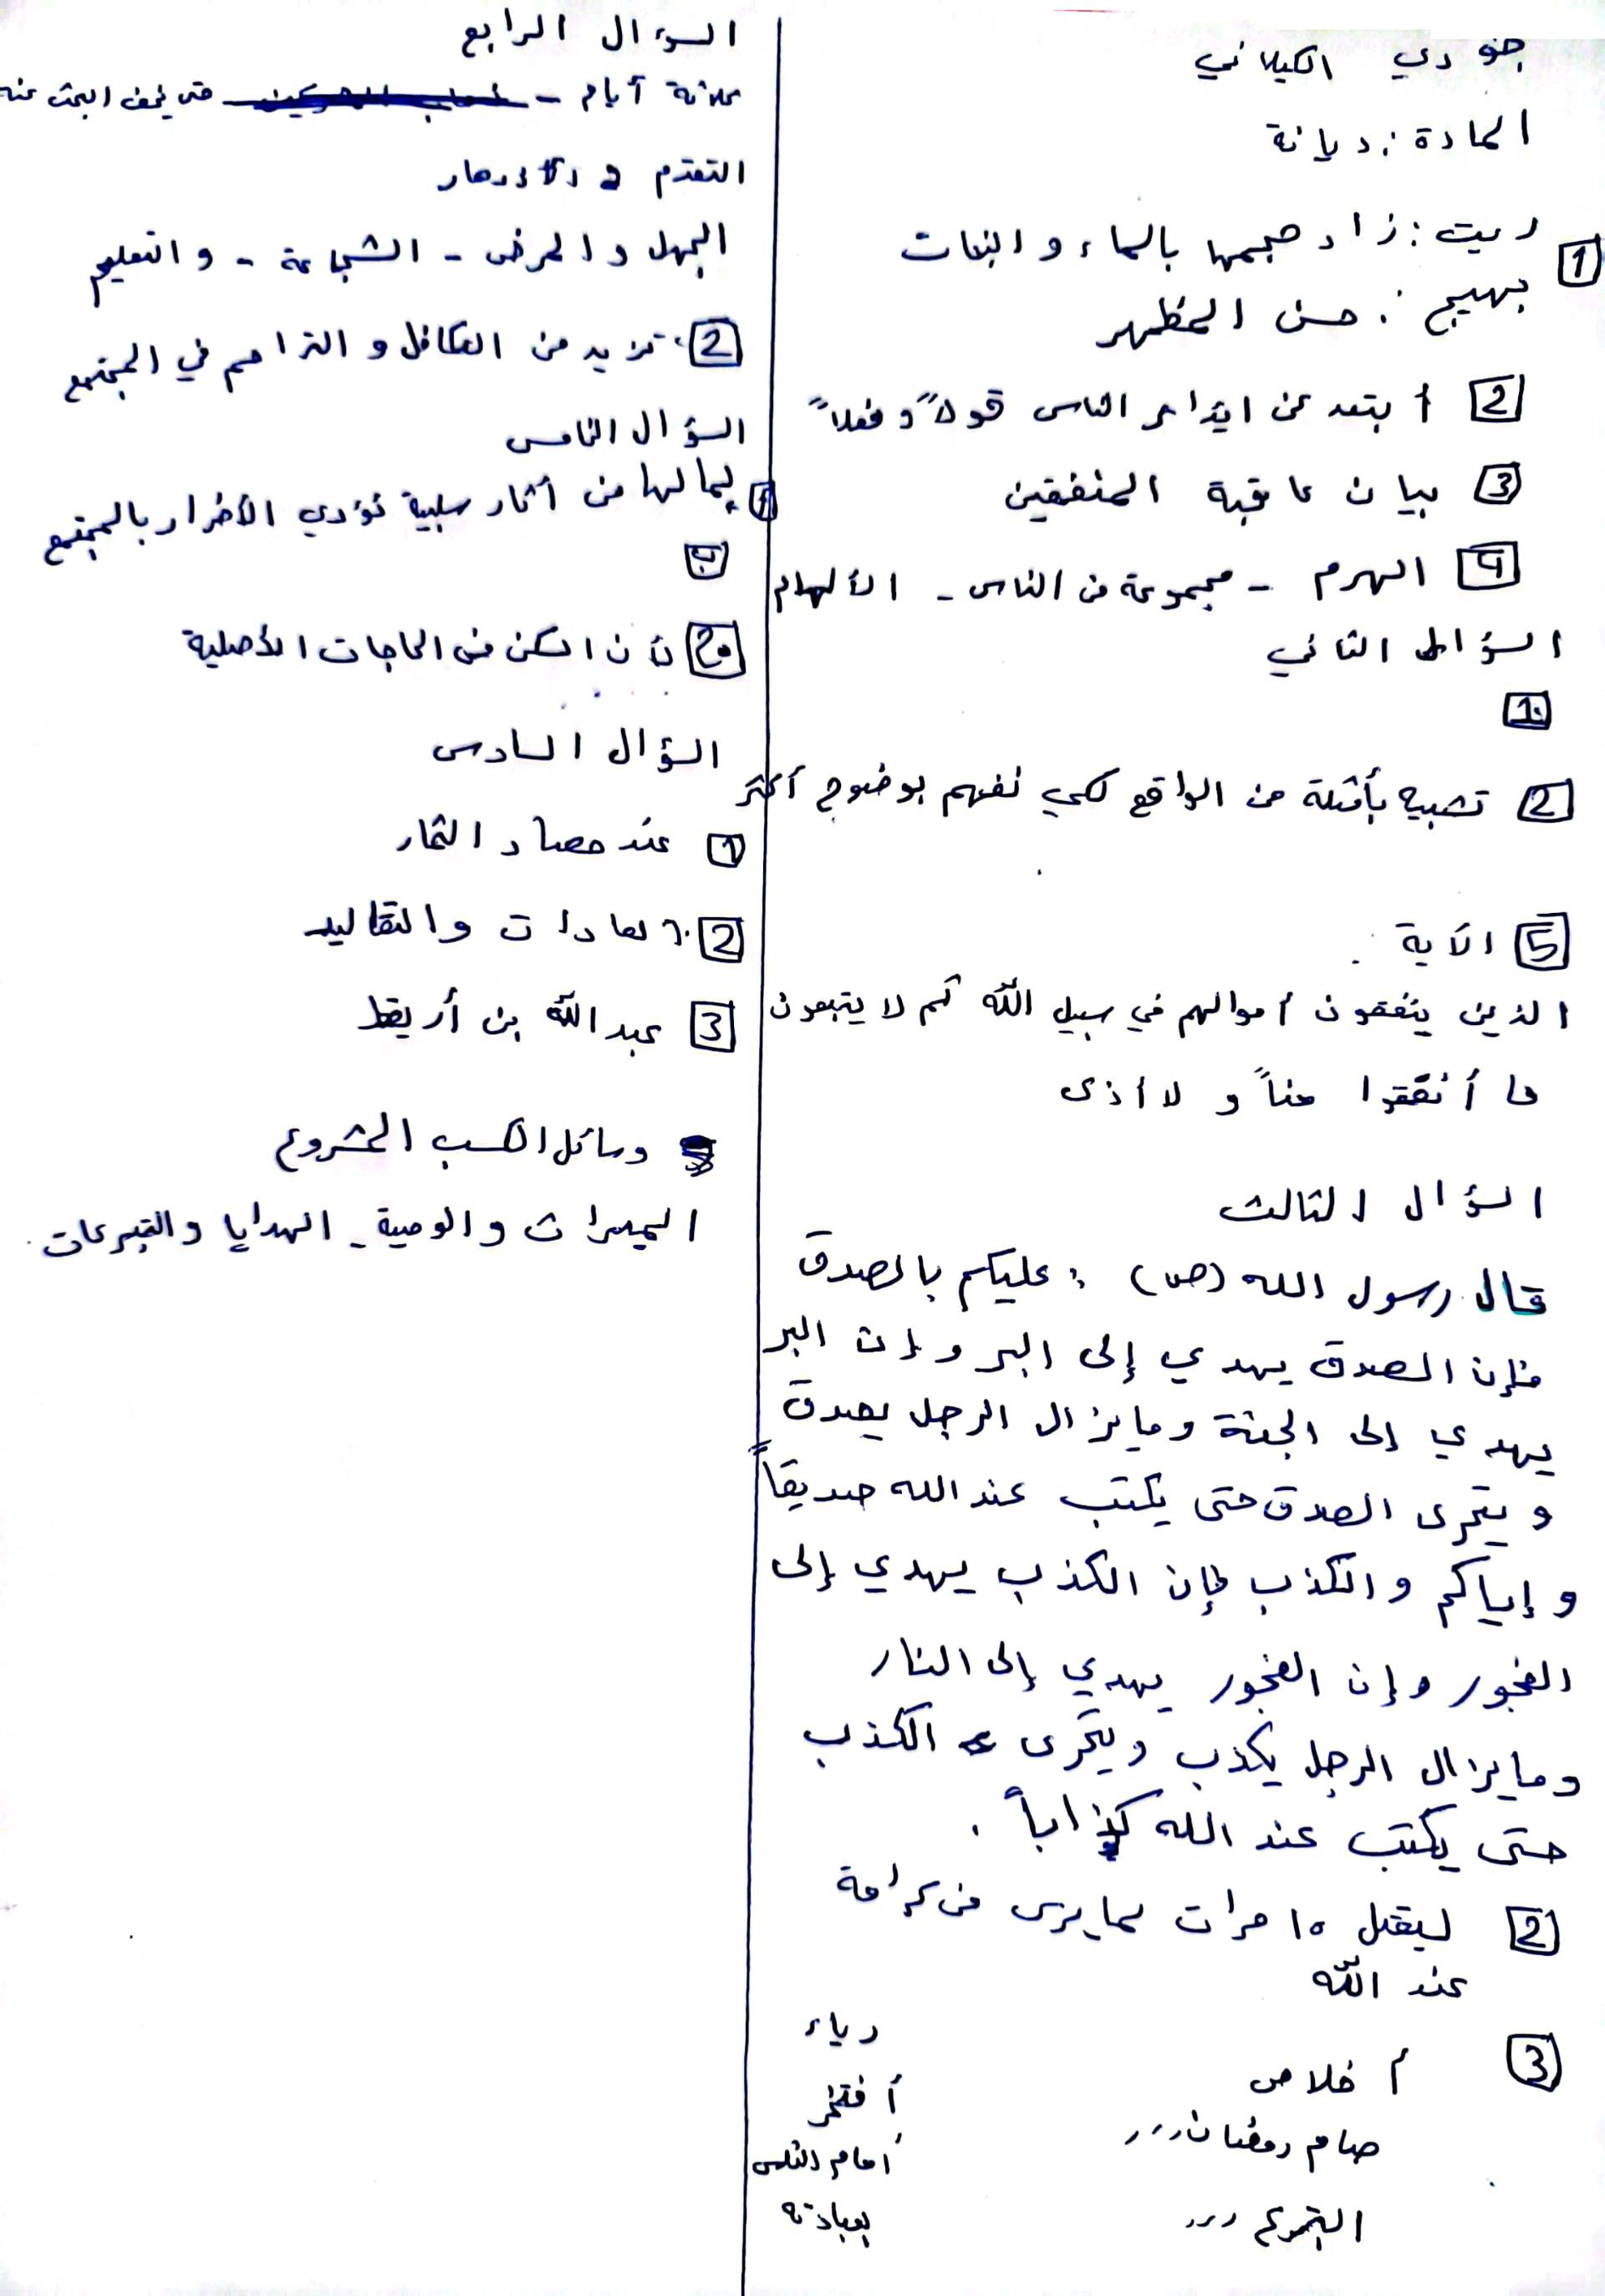 جودي الكيلاني
المادة : ديانة
1 ربت : زاد حجمها بالماء والنبات
بهيج : حسن المظهر
2 أبتعد عن ايذاء الناس قولاً وفعلاً
3 بيان عاقبة المنفقين
4 الهرم - مجموعة من الناس - الألهام
السؤال الثاني
1.
2 تصبيح بأمثلة من الواقع لكي نفهم بوضوح أكثر
5 الآية :
الذين ينفقون أموالهم في سبيل الله ثم لا يتبعون
ما أنفقوا مناً ولا أذى
السؤال الثالث
قال رسول الله (ص) : عليكم بالصدق
فإن الصدق يهدي إلى البر وإن البر
يهدي إلى الجنة وما يزال الرجل يصدق
ويتحرى الصدق حتى يكتب عند الله صديقاً
وإياكم والكذب فإن الكذب يهدي إلى
الفجور وإن الفجور يهدي إلى النار
وما يزال الرجل يكذب ويتحرى الكذب
حتى يكتب عند الله كذاباً .
2 ليقتل ١٠ مرات لما يرى من كرامة
عند الله
3 أخلاص رياء
صام رمضان أفتخر
أمام الناس
التبرع بعبادته
السؤال الرابع
ثلاثة أيام - حتى يخف البحث عنه
التقدم والازدهار
الجهل والمرض - الشجاعة - والتعليم
2. تزيد من التكافل والتراحم في المجتمع
السؤال الخامس
1 لما لها من أثار سلبية تؤدي الأضرار بالمجتمع
ب
2 لأن السكن من الحاجات الأصلية
السؤال السادس
1 عند حصاد الثمار
2. العادات والتقاليد
3 عبد الله بن أريقط
وسائل الكسب المشروع
الميراث والوصية - الهدايا والتبرعات .